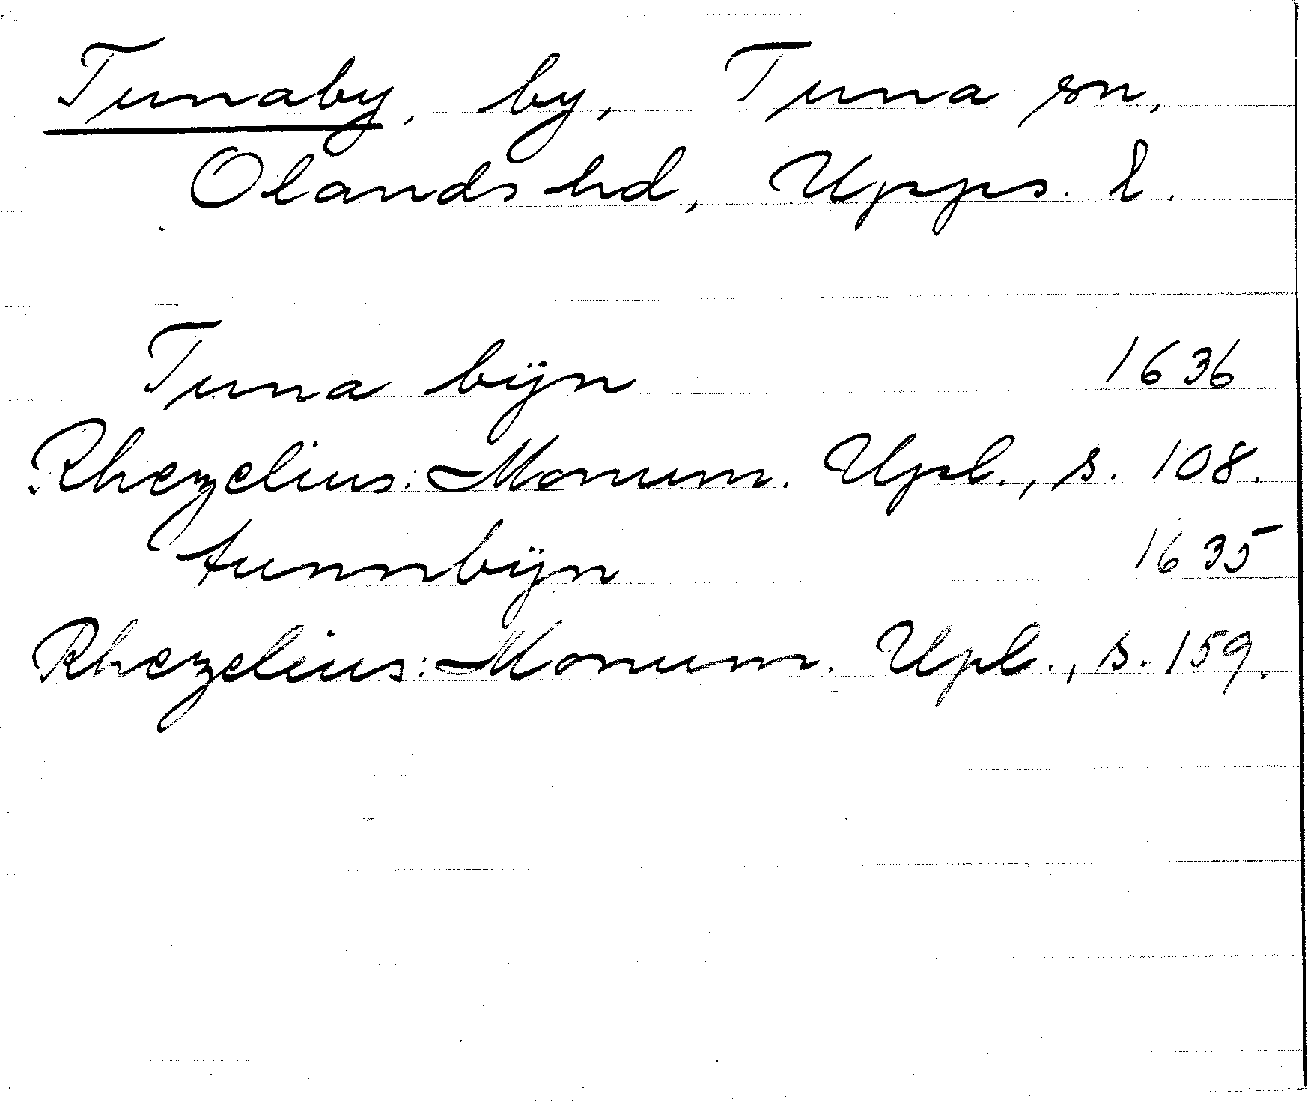 Tunaby, by, Tuna sn,
Olands hd, Upps. l.
Tuna bÿn 1636
Rhezelius: Monum. Upl., s. 108.
tunnbÿn 1635
Rhezelius: Monum. Upl., s. 159.